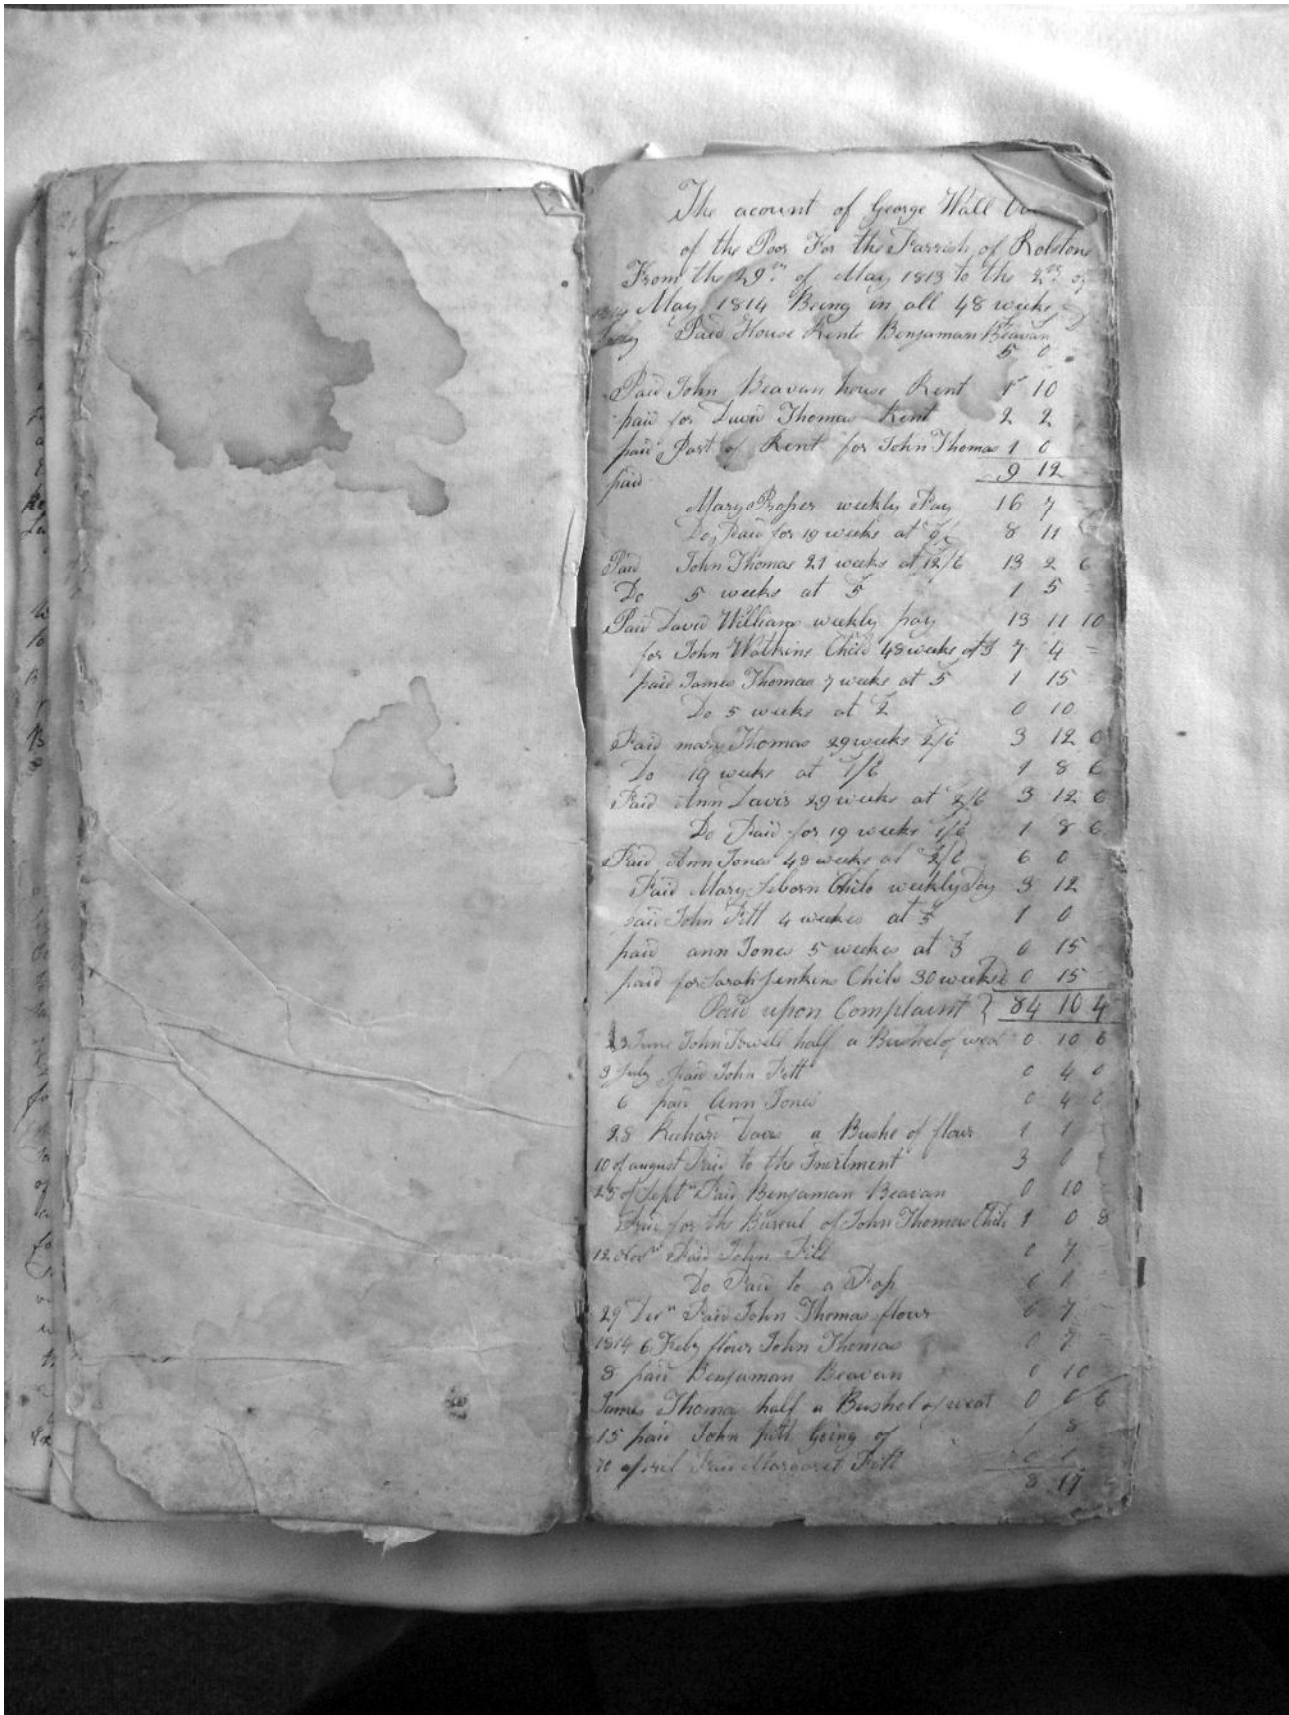 The acount of George Wall
of the Poor For the Parrish of Rolstone
From the 29th of May 1813 to the 2nd of
May 1814 Being in all 48 weeks
Paid House Rente Benjaman Beavan
5 0
Paid John Beavan house Rent 1 10
paid for David Thomas Rent 2 2
paid Part of Rent for John Thomas 1 0
paid 9 12
Mary Proper weekly Pay 16 7
Do Paid for 19 weeks at 8 11
Paid John Thomas 21 weeks at 12/6 13 2 6
Do 5 weeks at 5 1 5
Paid David Williams weekly pay 13 11 10
for John Watkins Child 48 weeks at 3 7 4
paid James Thomas 7 weeks at 5 1 15
Do 5 weeks at 2 0 10
Paid mary Thomas 29 weeks 2/6 3 12 6
Do 19 weeks at 1/6 1 8 6
Paid Ann Davis 29 weeks at 2/6 3 12 6
Do Paid for 19 weeks 1/6 1 8 6
Paid Ann Jones 48 weeks at 2/6 6 0
Paid Mary Seborn Child weekly Pay 3 12
paid John Pitt 4 weekes at 5 1 0
paid ann Jones 5 weekes at 3 0 15
paid for Sarah Jenkins Child 30 weeks 0 15
Paid upon Complaint 84 10 4
June John Powell half a Bushel of weat 0 10 6
3 July paid John Pitt 0 4 0
6 paid Ann Jones 0 4 0
28 Richard Davis a Bushe of flour 1 1
10 of august Paid to the 3 0
25 of Septr Paid Benjaman Beavan 0 10
Paid for the Bureul of John Thomas Child 1 0 8
12 Novr Paid John Pitt 0 7
Do Paid to a
29 Decr Paid John Thomas flour 0 7
1814 6 Feby flour John Thomas 0 7
8 paid Benjaman Beavan 0 10
James Thomas half a Bushel of weat 0 6 6
15 paid John pitt Going of 8
10 april Paid Margaret Pitt
8 17